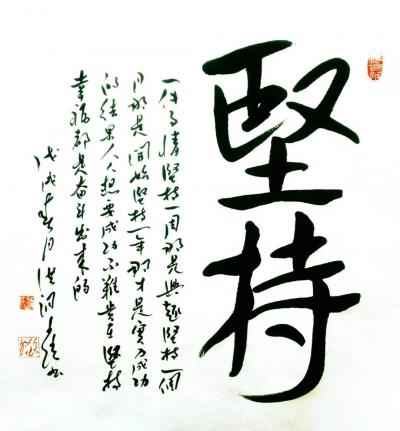 堅持
一件事情堅持一周那是興趣堅持一個
月那是開始堅持一年那才是實力成功
的结果人人想要成功不難貴在堅持
幸福都是奋斗出来的
戊戌春月洪润书